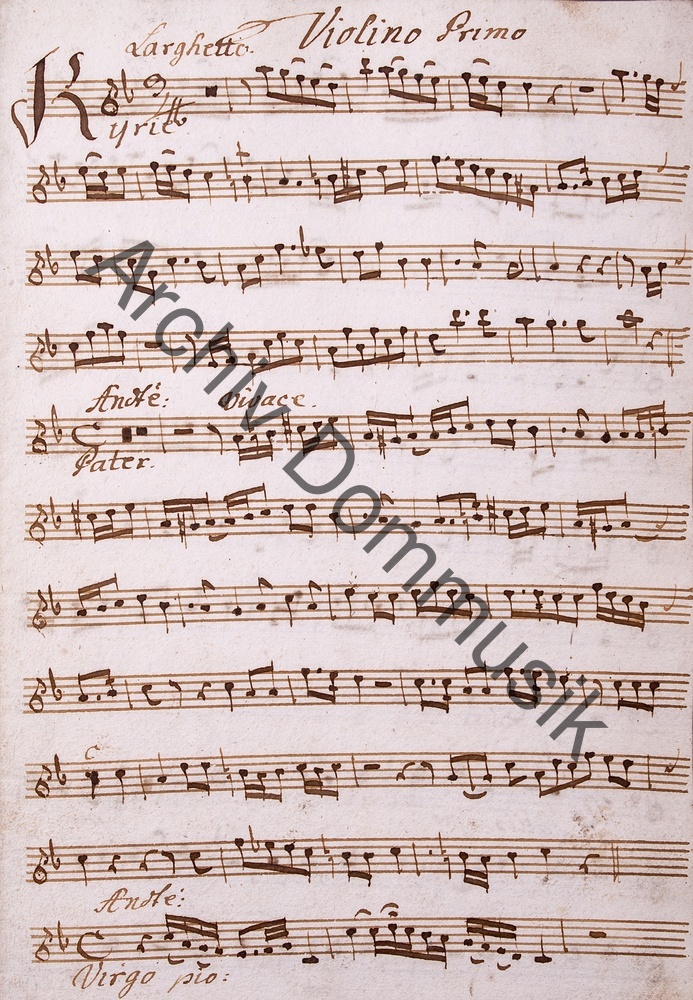 Violino Primo
Larghetto.
Kyrie.
Andte: Vivace.
Pater.
Andte:
Virgo pio:
Archiv Dommusik